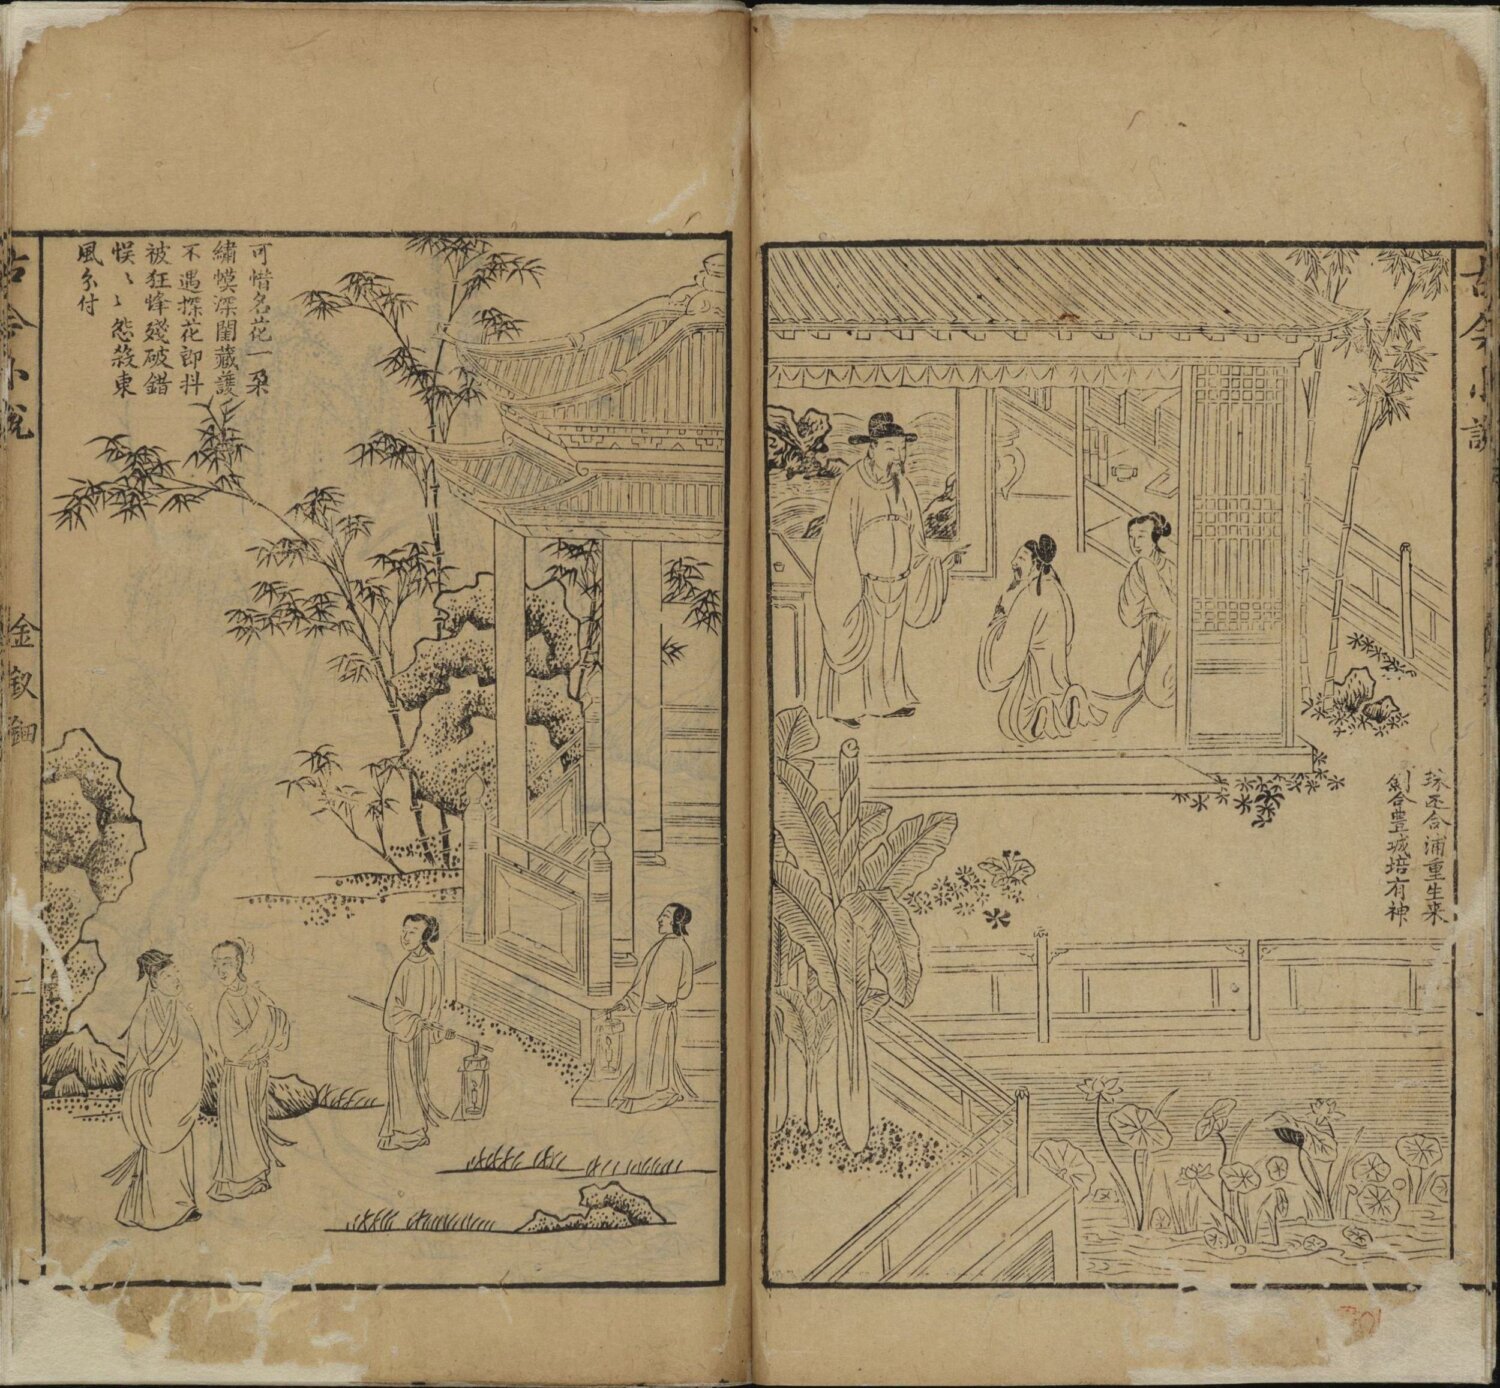 古今小說
珠還合浦重生采
劍合豊城培有神
可惜名花一朶
繡幙深閨藏護
不遇探花郎抖
被狂蜂殘破錯
悮〻怨殺東
風分付
古今小說
金釵鈿
二